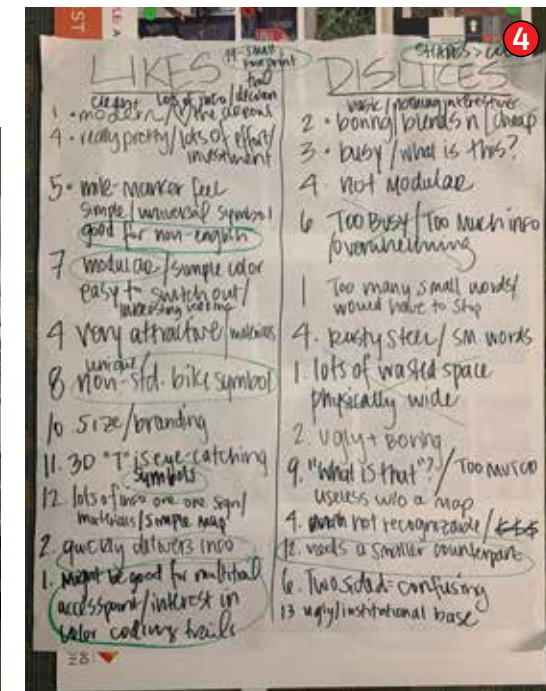 ST
4
14 small
footprint
trail
LIKES
1 • modern / the
4 • really pretty/lots of effort/
investment
5 • mile-marker feel
simple/universal symbol
good for non-english
7 modular/simple color
easy to switch out/
4 very attractive/materials
unique/
8 non-std. bike symbol
10. Size/branding
11. 3D "T" is eye-catching
symbols
12. lots of info one one sign/
materials/simple map
2. quickly delivers info
1. Might be good for multitrail
accesspoint/interest in
color coding trails
SHAPES >
DISLIKES
2 • boring/blends n/cheap
3 • busy/what is this?
4 not modular
6 Too Busy/Too Much info
overwhelming
1 Too many small words/
would have to stop
4. Rusty steel/sm. words
1. lots of wasted space
physically wide
2. Ugly + Boring
9. "What is that"?/Too
useless w/o a map
4. not recognizable/
12. needs a smaller counterpart
6. Two sided-confusing
13 ugly/institutional base